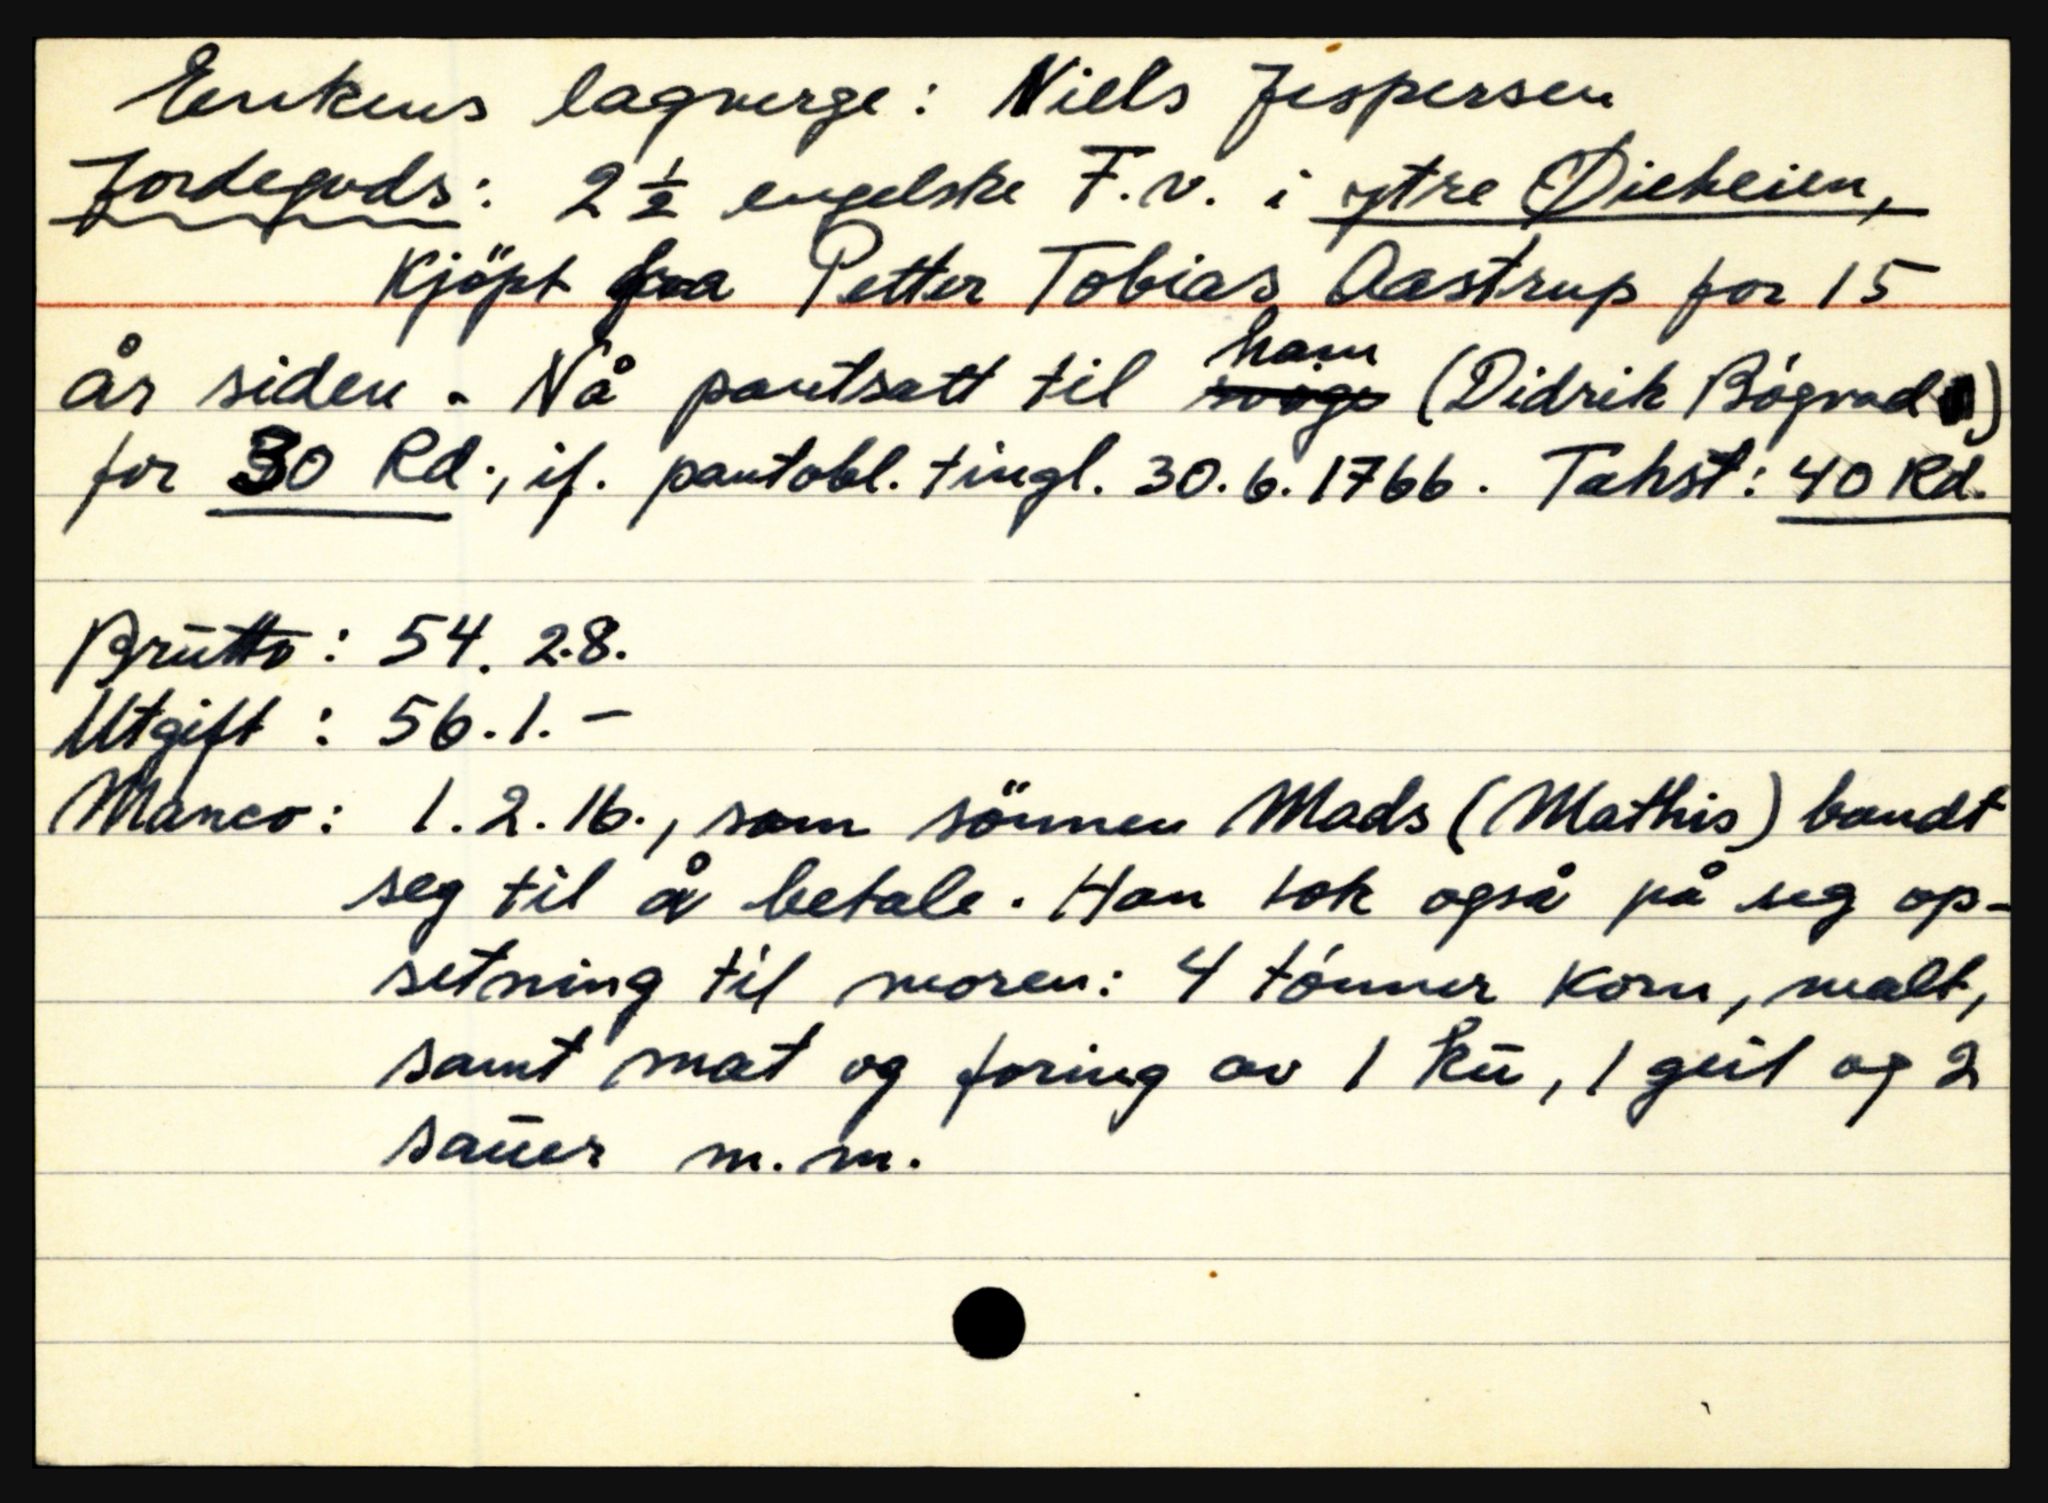 Enkens lagverge: Niels Jespersen
Jordegods: 2 ½ engelske F.v. i ytre Dieheien,
Kjöpt fra Petter Tobias Aastrup for 15
år siden. Nå pantsatt til ham (Didrik Bógvad)
for 30 Rd., if. pantobl. tingl. 30.6.1766. Takst: 40 Rd.
Brutto: 54. 2.8.
Utgift: 56.1.-
Manco: 1.2.16., som sönnen Mads (Mathis) bandt
seg til å betale. Han tok også på seg op-
setning til moren: 4 tónner korn, malt,
samt mat og foring av 1 ku, 1 geit og 2
sauer m.m.